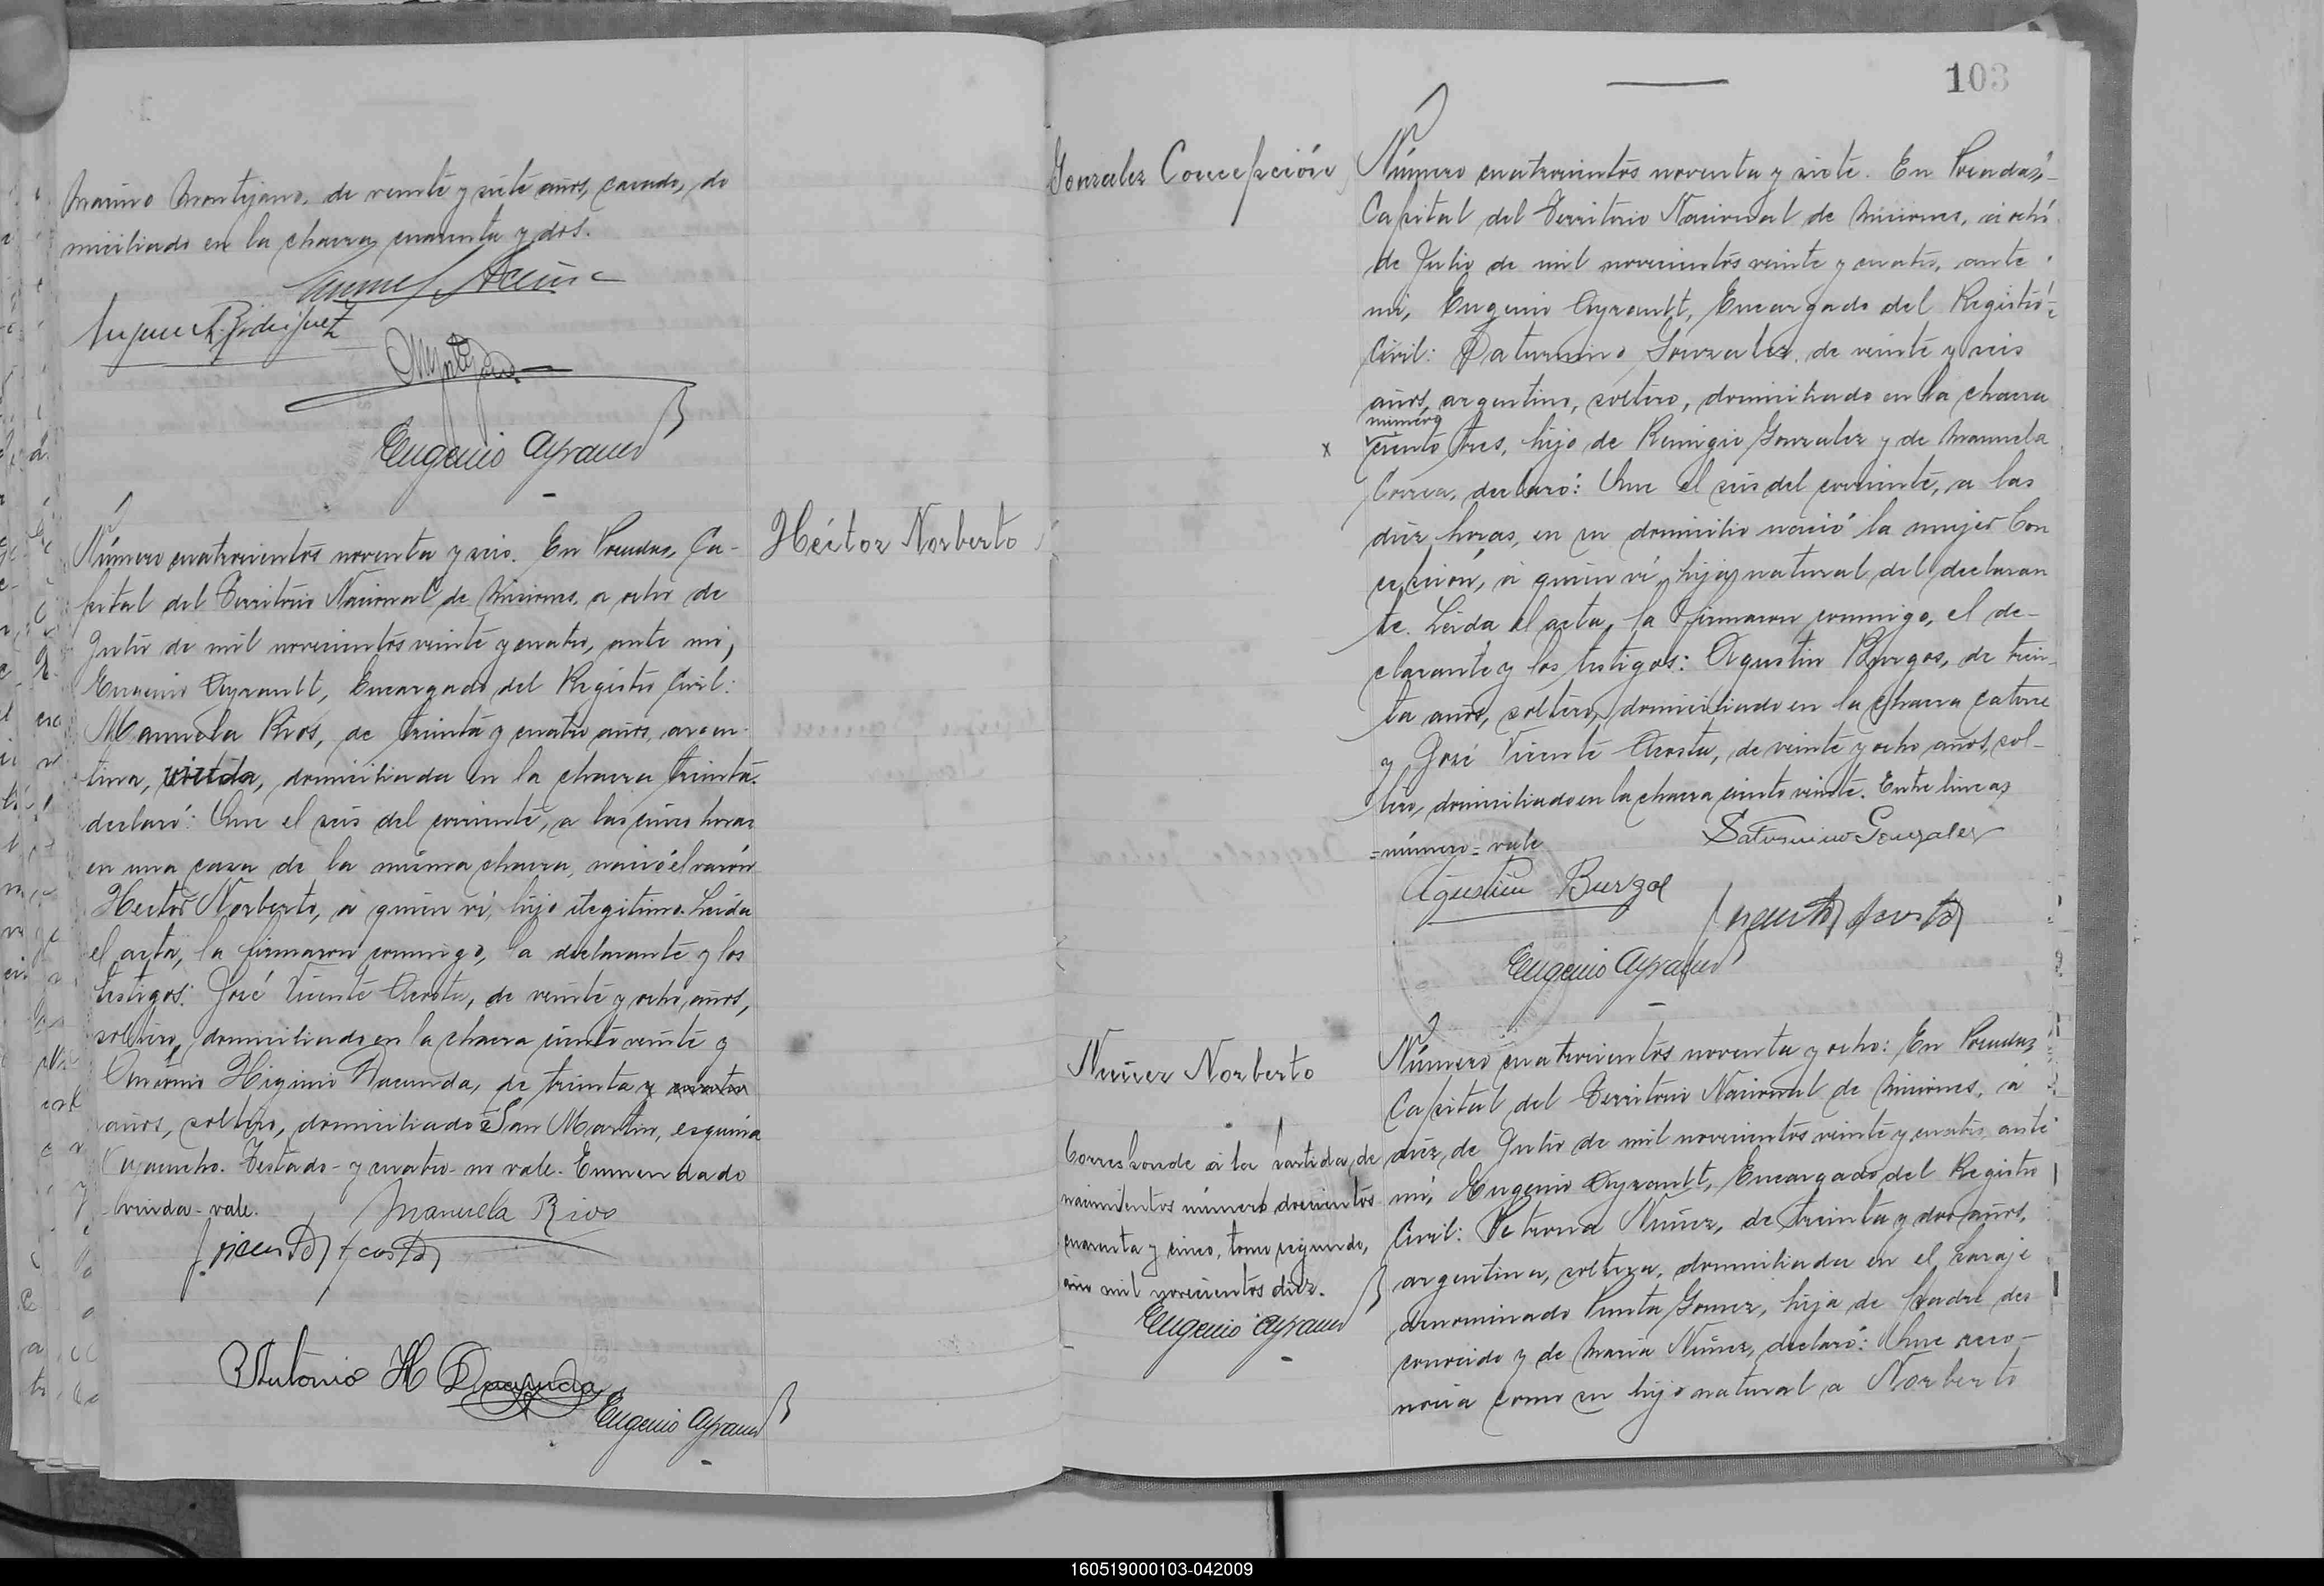 Marino Montejano, de veinte y siete años, casado, do
miciliado en la chacra cuarenta y dos.
Eugenio Ayrault
Héctor Norberto
Número cuatrocientos noventa y seis. En Posadas, Ca-
pital del Territorio Nacional de Misiones, a ocho de
Julio de mil novecientos veinte y cuatro, ante mi,
Eugenio Ayrault, Encargado del Registro Civil:
Manuela Rios, de treinta y cuatro años, argen-
tina, viuda, domiciliada en la chacra treinta
declaró: Que el seis del corriente, a las cinco horas
en una casa de la misma chacra, nació el varón
Hector Norberto, á quien ví, hijo ilegitimo. Leida
el acta, la firmaron conmigo, la declarante y los
testigos: José Vicente Acosta, de veinte y ocho años,
soltero, domiciliado en la chacra ciento veinte y
Antonio Higinio Dacunda, de treinta y cuatro
años, soltero, domiciliado San Martin, esquina
Ayacucho. Testado - y cuatro - no vale. Enmendado
- viuda - vale.
Manuela Rios
J. Vicente Acosta
Antonio H Dacunda
Eugenio Ayrault
103
Gonzalez Concepción
Número cuatrocientos noventa y siete. En Posadas,
Capital del Territorio Nacional de Misiones, á ocho
de Julio de mil novecientos veinte y cuatro, ante
mi, Eugenio Ayrault, Encargado del Registro
Civil: Saturnino Gonzalez, de veinte y seis
años, argentino, soltero, domiciliado en la chacra
número
x ciento tres, hijo de Remigio Gonzalez y de Manuela
Correa, declaró: Que el seis del corriente, a las
diez horas, en su domicilio nació la mujer Con
cepción, á quien ví, hija natural del declaran
te. Leida el acta, la firmaron conmigo, el de-
clarante y los testigos: Agustin Burgos, de trein-
ta años, soltero, domiciliado en la chacra catorce
y José Vicente Acosta, de veinte y ocho años, sol-
tero, domiciliado en la chacra ciento veinte. Entre lineas
= número = vale
Saturnino Gonzalez
Agustin Burgos
J. Vicente Acosta
Eugenio Ayrault
Nuñez Norberto
Corresponde á la partida de
nacimientos número doscientos
cuarenta y cinco, tomo segundo,
año mil novecientos diez.
Eugenio Ayrault
Número cuatrocientos noventa y ocho: En Posadas
Capital del Territorio Nacional de Misiones, á
diez de Julio de mil novecientos veinte y cuatro, ante
mi, Eugenio Ayrault, Encargado del Registro
Civil: Petrona Nuñez, de treinta y dos años,
argentina, soltera, domiciliada en el paraje
denominado Punta Gomez, hija de padre des
conocido y de Maria Nuñez, declaró: Que reco-
nocia como su hijo natural a Norberto
160519000103-042009